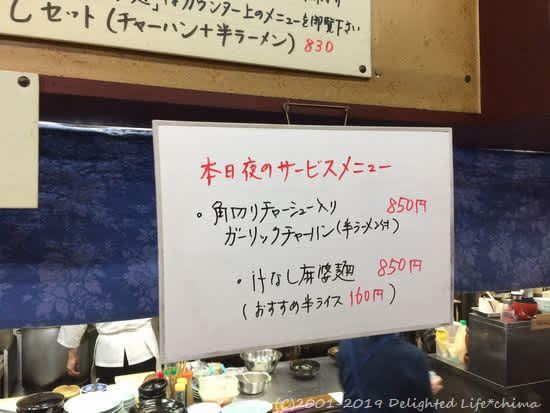 はカウンター上のメニューを御覧下さい
しセット(チャーハン+半ラーメン) 830
本日夜のサービスメニュー
・角切りチャーシュー入り 850円
ガーリックチャーハン(半ラーメン付)
・汁なし麻婆麺 850円
(おすすめ半ライス160円)
(C)2001-2019 Delighted Life*chima